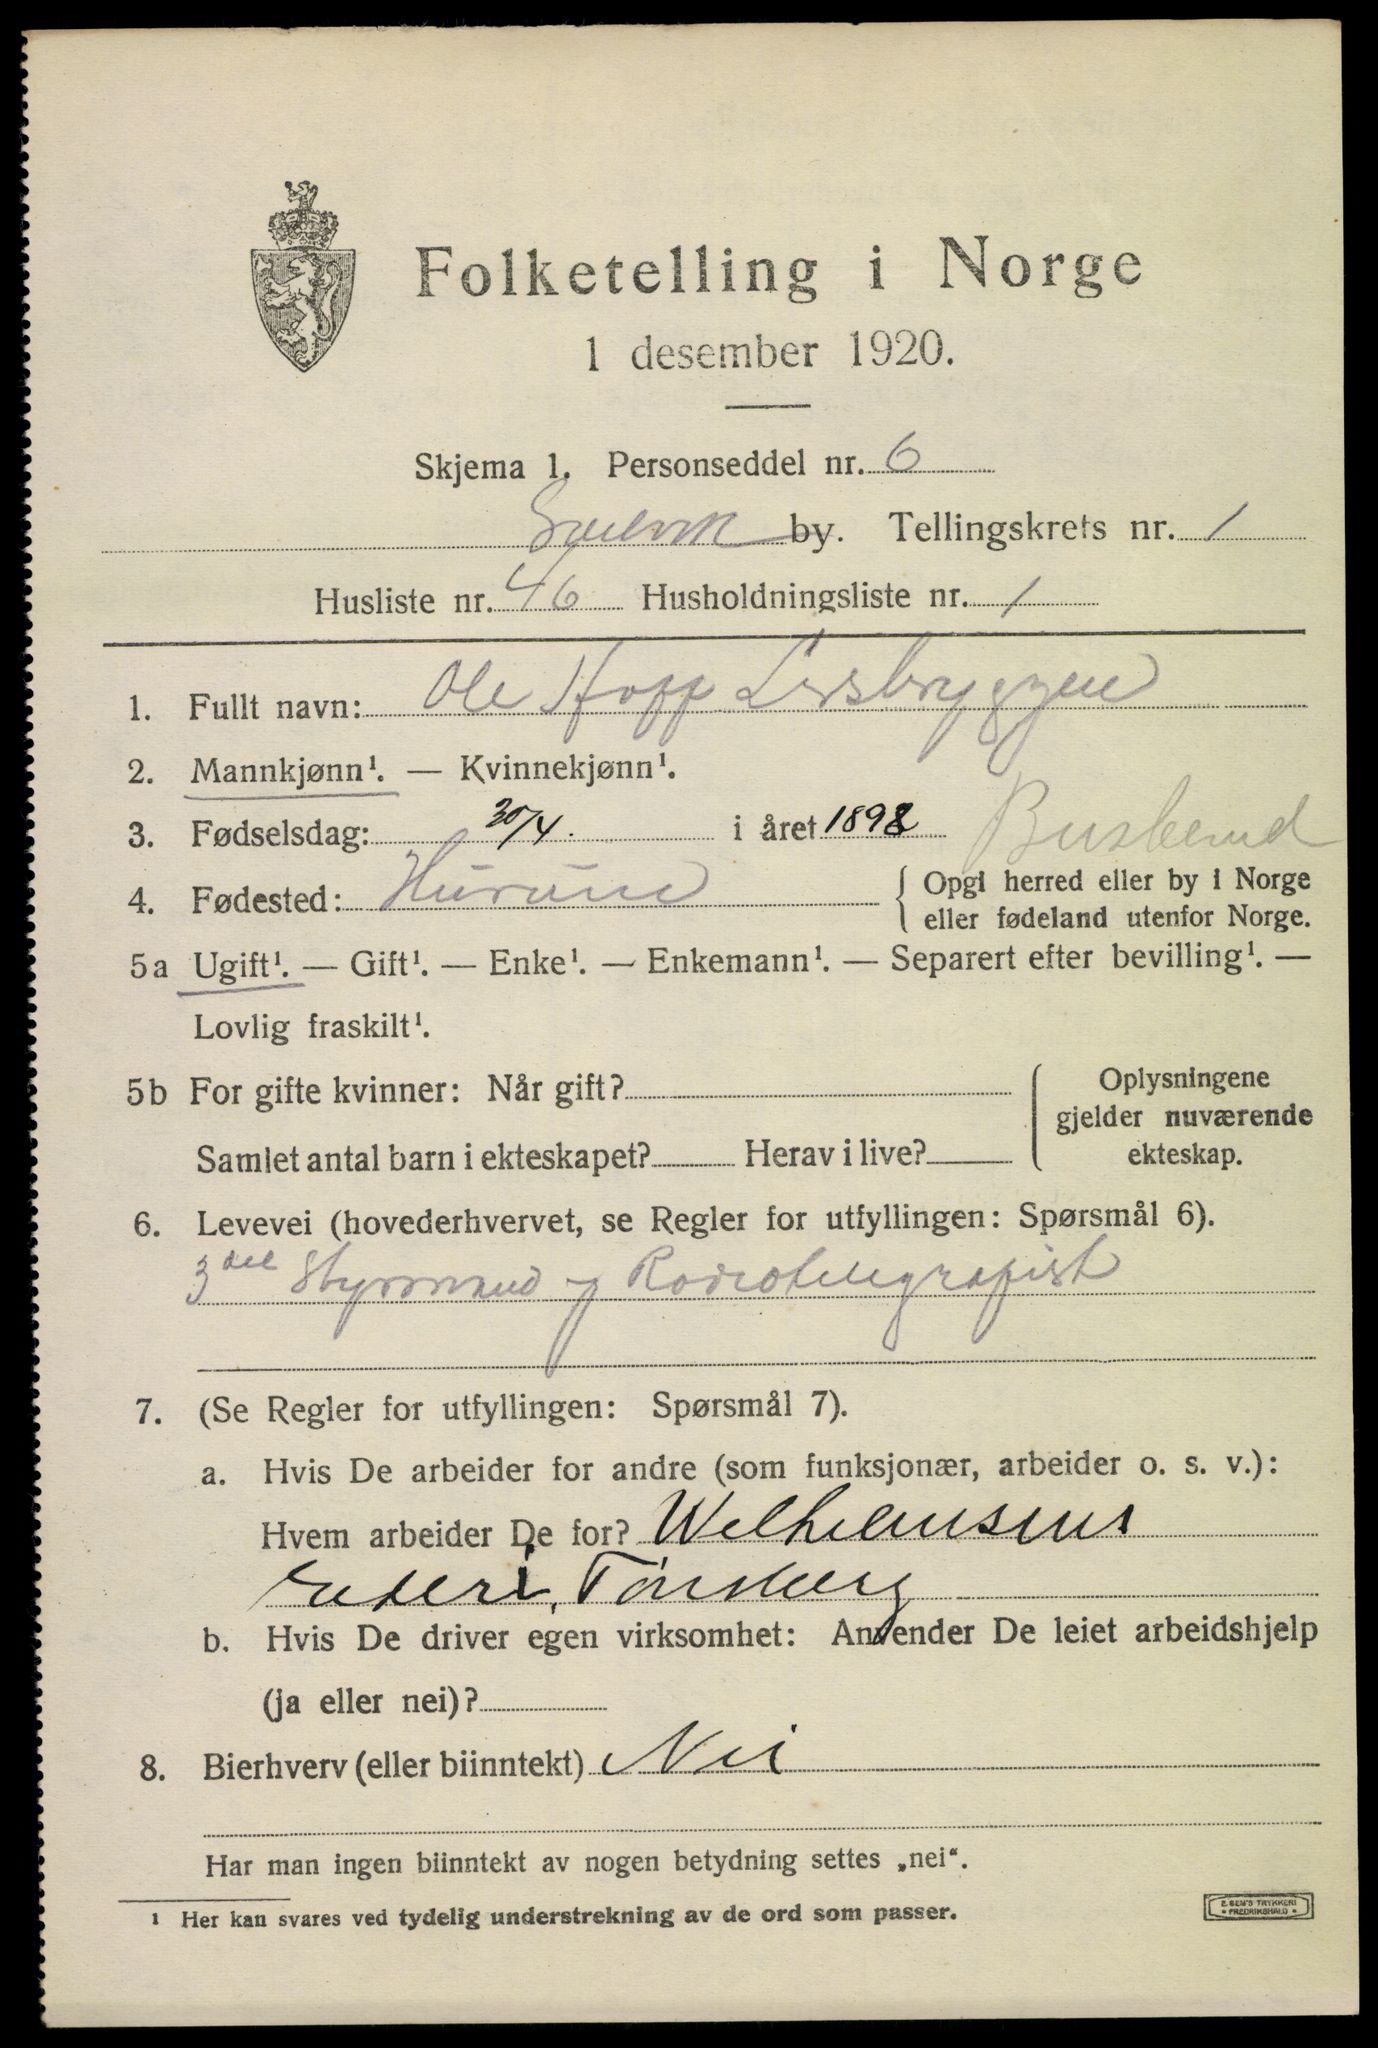 Folketelling i Norge
1 desember 1920.
Skjema 1. Personseddel nr. 6
Svelvik by. Tellingskrets nr. 1
Husliste nr. 46 Husholdningsliste nr. 1
1. Fullt navn: Ole Hopp Lersbryggen
2. Mannkjønn¹. — Kvinnekjønn¹.
3. Fødselsdag: 30/4. i året 1898 Buskerud
4. Fødested: Hurum { Opgi herred eller by i Norge
eller fødeland utenfor Norge.
5a Ugift¹. — Gift¹. — Enke¹. — Enkemann¹. — Separert efter bevilling¹. —
Lovlig fraskilt¹.
5b For gifte kvinner: Når gift? { Oplysningene
gjelder nuværende
Samlet antal barn i ekteskapet? Herav i live? ekteskap.
6. Levevei (hovederhvervet, se Regler for utfyllingen: Spørsmål 6).
3die Styrmand og Radiotelegrafist
7. (Se Regler for utfyllingen: Spørsmål 7).
a. Hvis De arbeider for andre (som funksjonær, arbeider o. s. v.):
Hvem arbeider De for? Welhelmsens
rederi, Tønsberg
b. Hvis De driver egen virksomhet: Anvender De leiet arbeidshjelp
(ja eller nei)?
8. Bierhverv (eller biinntekt) Nei
Har man ingen biinntekt av nogen betydning settes „nei“.
¹ Her kan svares ved tydelig understrekning av de ord som passer.
E. SEM'S TRYKKERI
FREDRIKSHALD